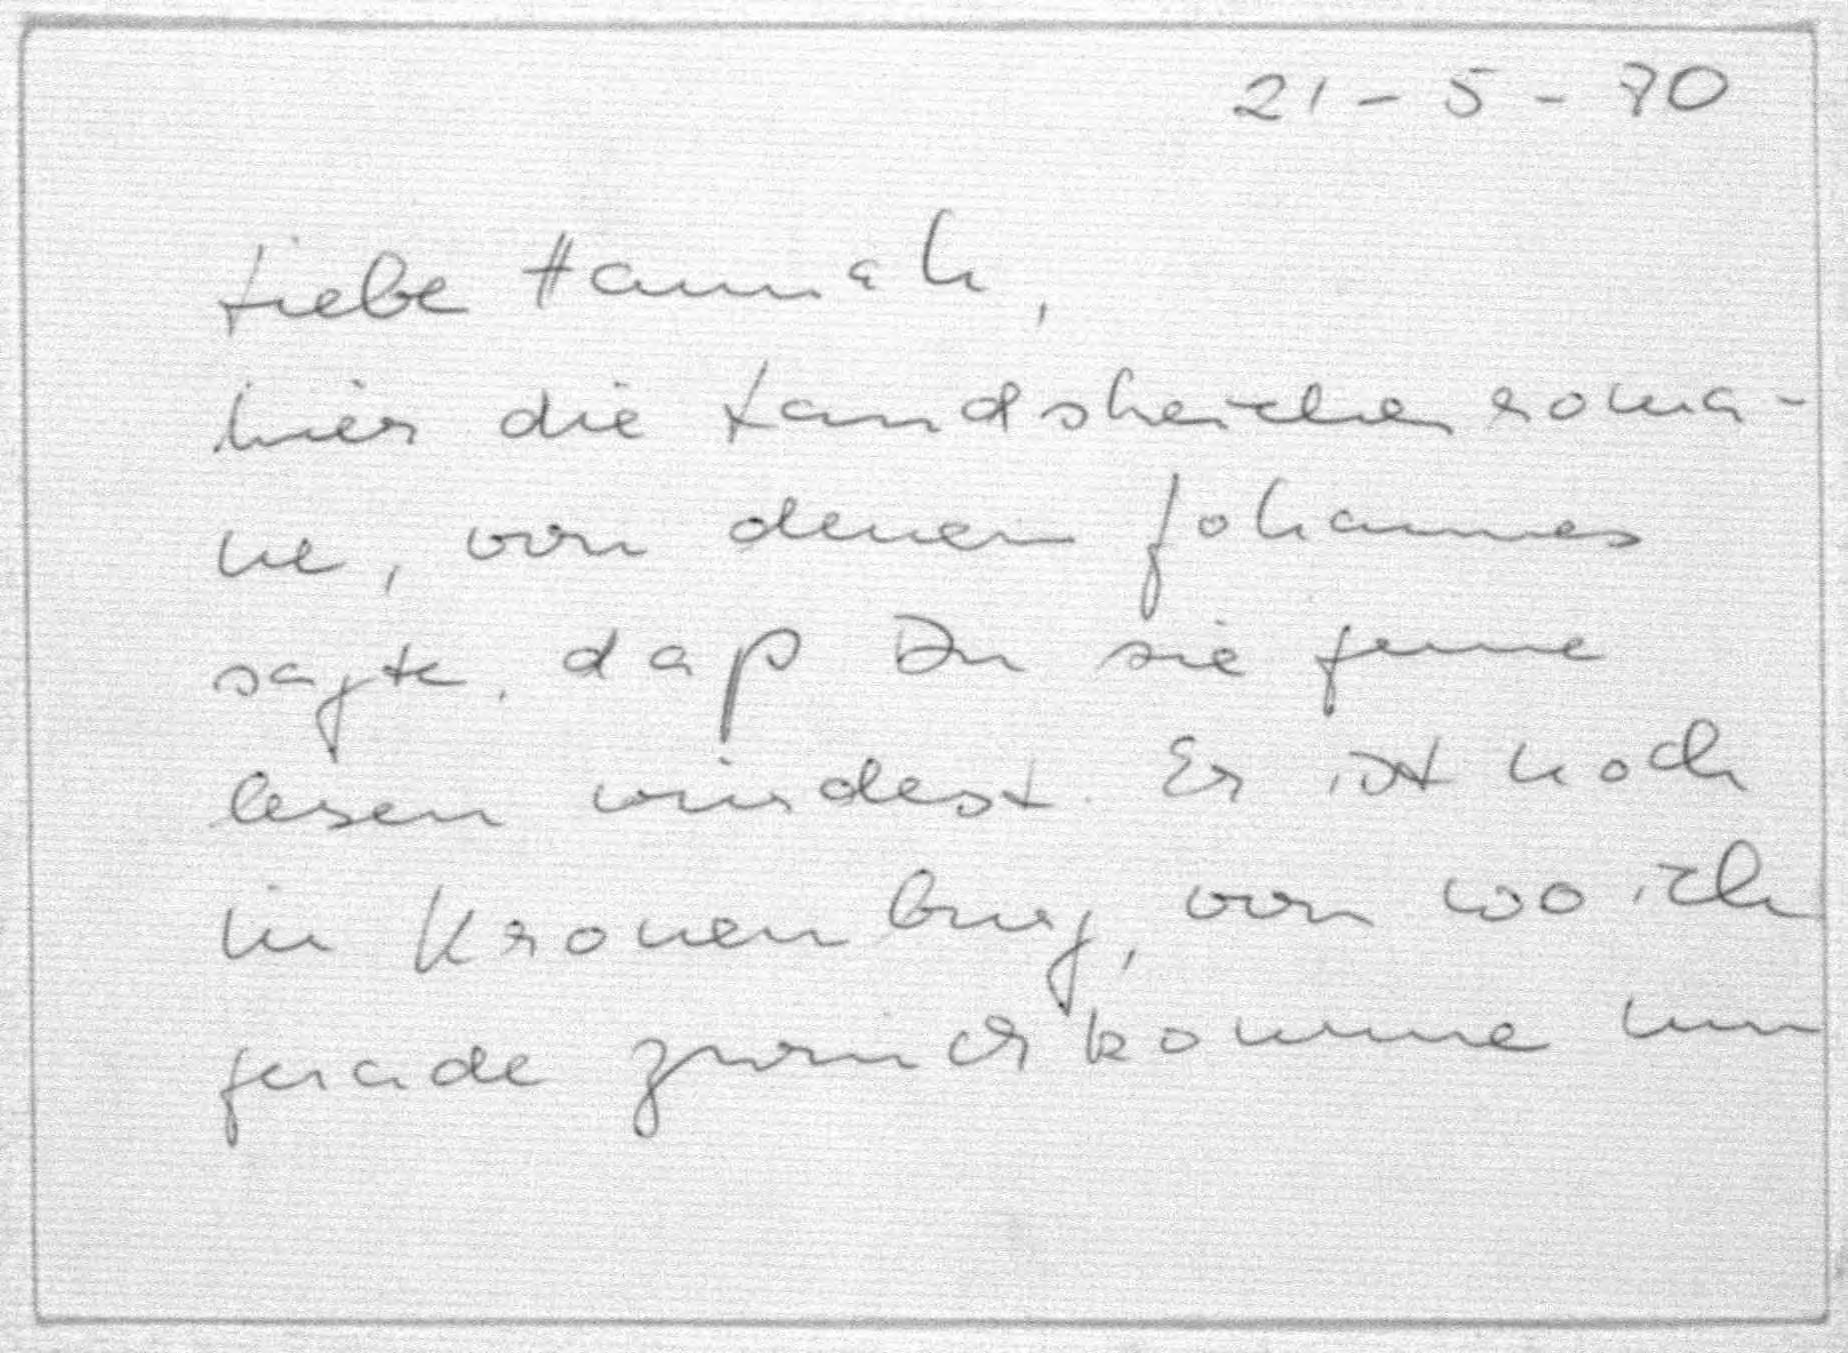 21-5-70
Liebe Hannah,
hier die Landsherrenroma-
ne, von denen Johannes
sagte, daß Du sie gerne
lesen würdest. Er ist noch
in Kronenburg, von wo ich
gerade zurückkomme um